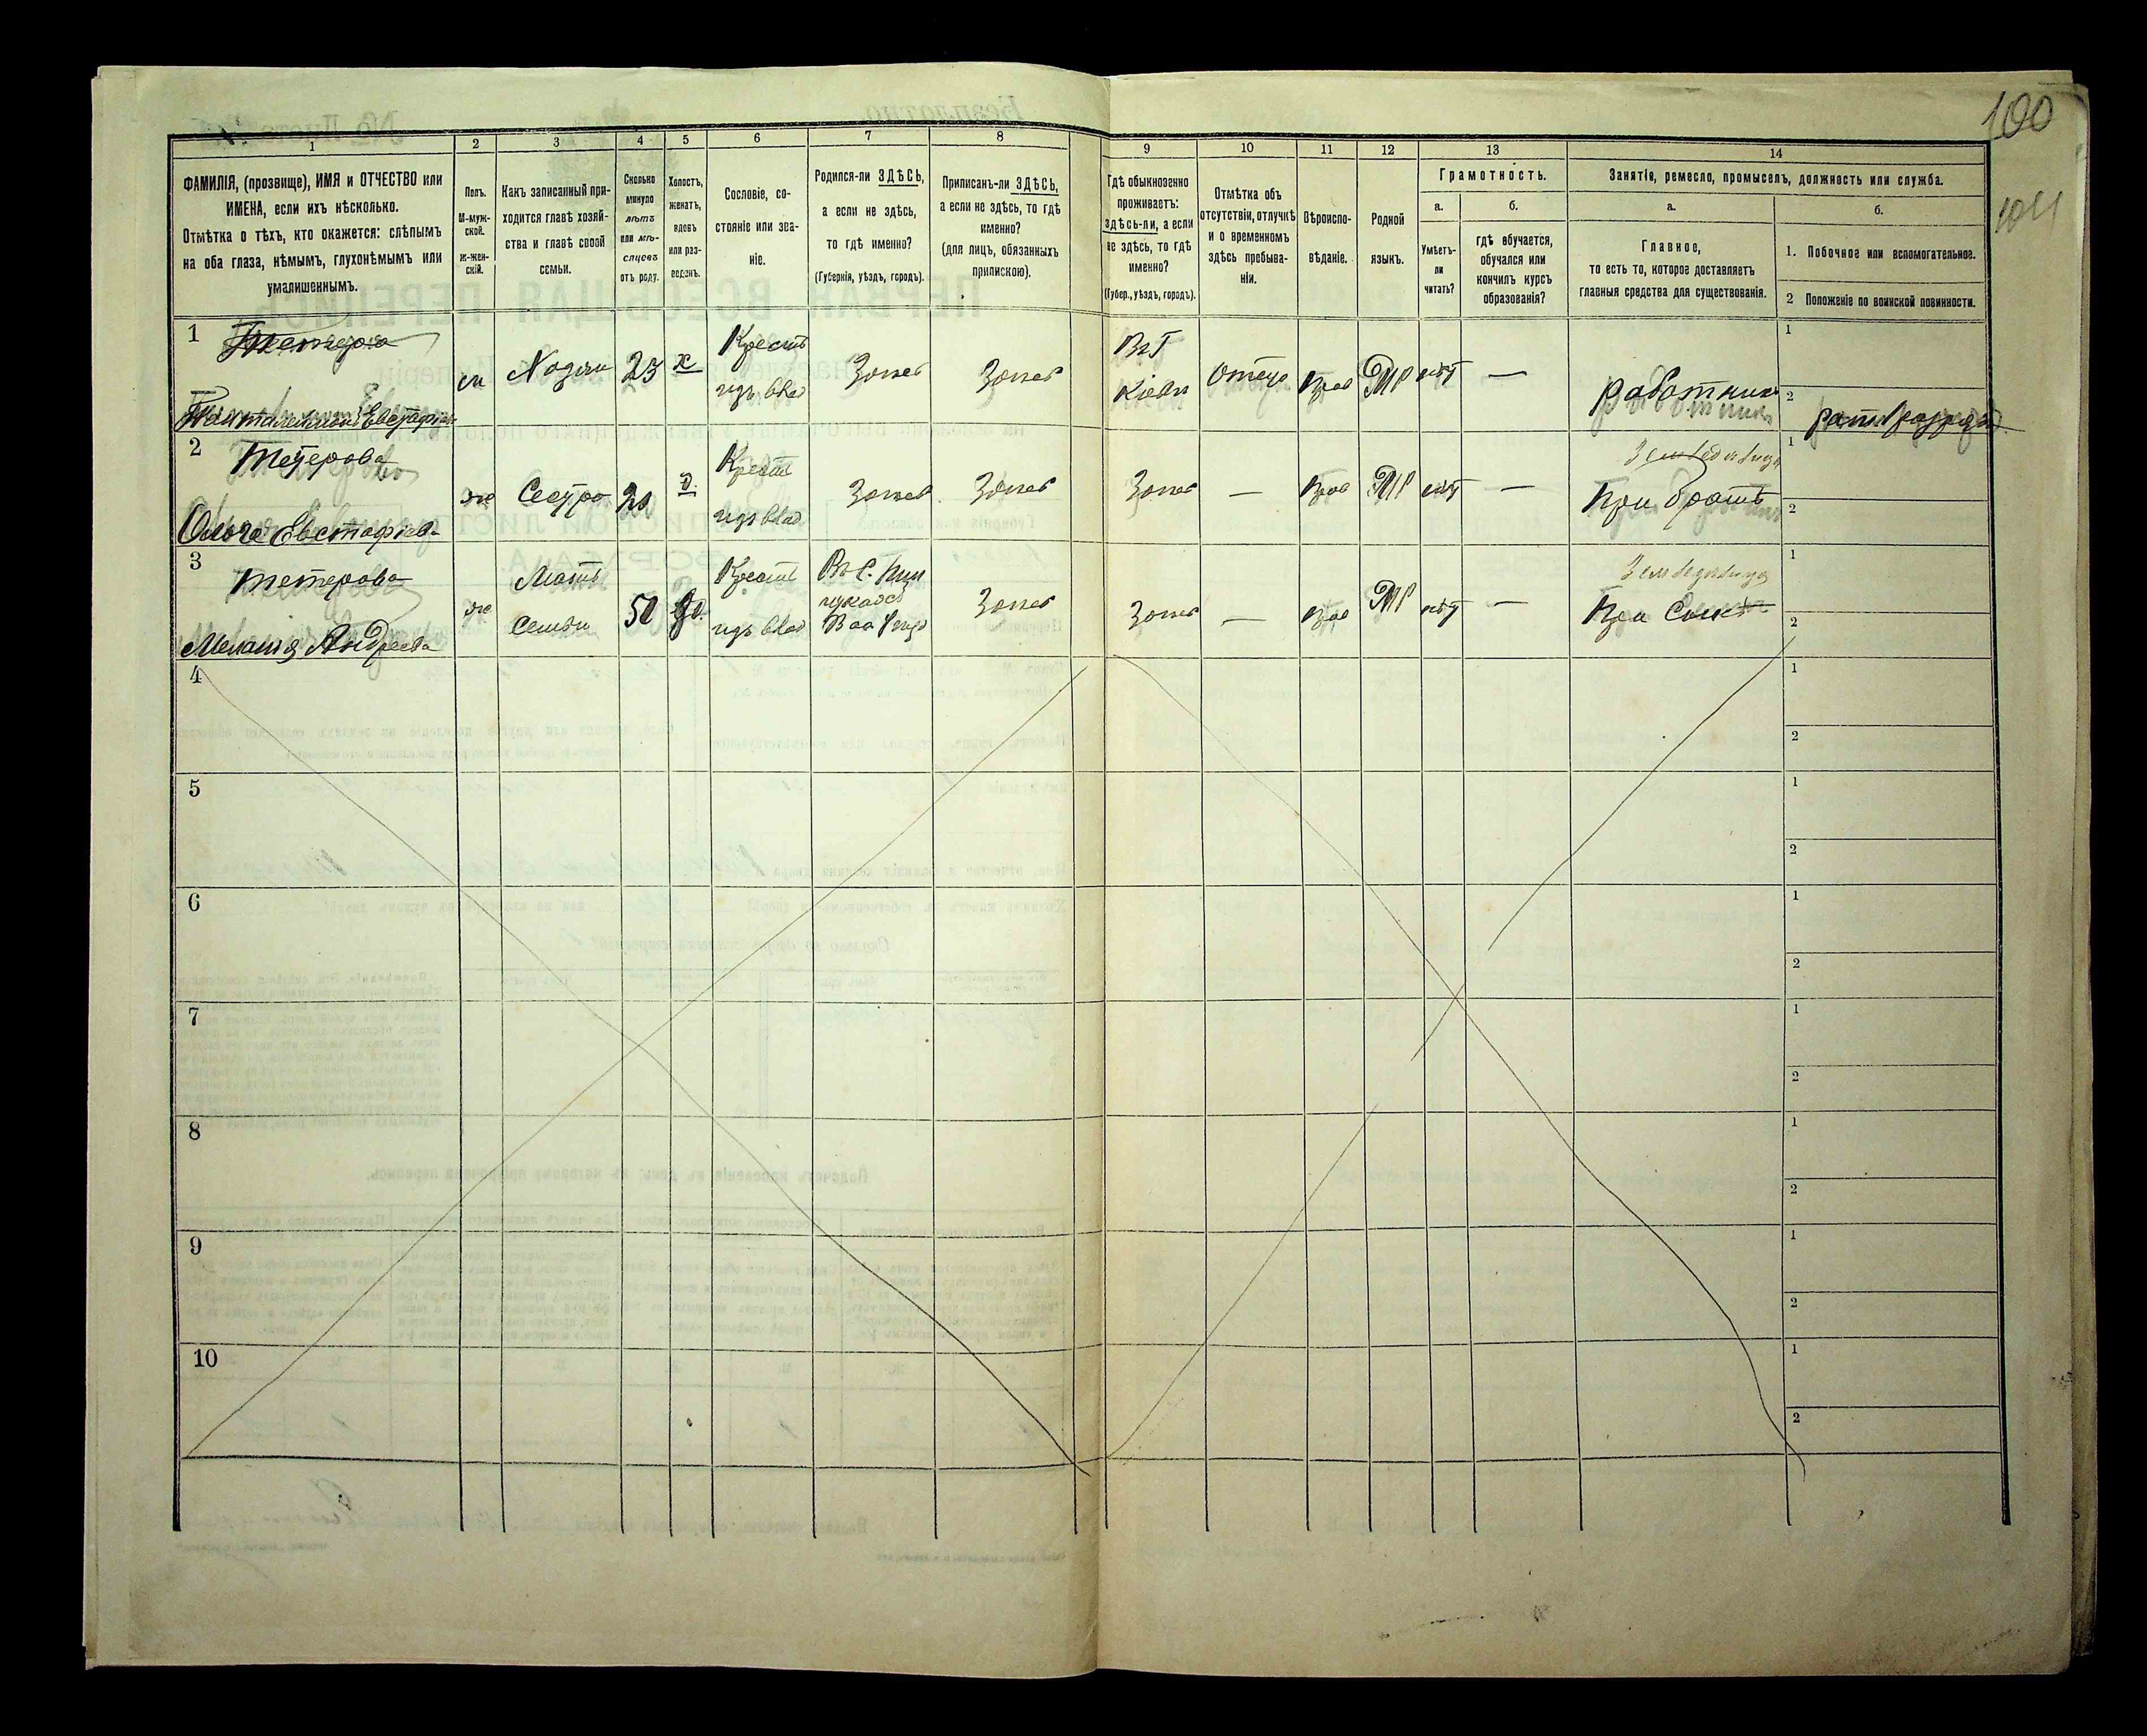 100
104
1
2
3
4
5
6
7
8
9
10
11
12
13
14
ФАМИЛІЯ, (прозвище), ИМЯ и ОТЧЕСТВО или
ИМЕНА, если ихъ нѣсколько.
Отмѣтка о тѣхъ, кто окажется: слѣпымъ
на оба глаза, нѣмымъ, глухонѣмымъ или
умалишеннымъ.
Полъ.
М-муж-
ской.
Ж-жен-
скій.
Какъ записанный при-
ходится главѣ хозяй-
ства и главѣ своей
семьи.
Сколько
минуло
лѣтъ
или мѣ-
сяцевъ
отъ роду.
Холостъ,
женатъ,
вдовъ
или раз-
веденъ.
Сословіе, со-
стояніе или зва-
ніе.
Родился-ли ЗДѢСЬ,
а если не здѣсь,
то гдѣ именно?
(Губернія, уѣздъ, городъ).
Приписанъ-ли ЗДѢСЬ,
а если не здѣсь, то гдѣ
именно?
(для лицъ, обязанныхъ
припискою).
Гдѣ обыкновенно
проживаетъ:
здѣсь-ли, а если
не здѣсь, то гдѣ
именно?
(Губер., уѣздъ, городъ).
Отмѣтка объ
отсутствіи, отлучкѣ
и о временномъ
здѣсь пребыва-
ніи.
Вѣроиспо-
вѣданіе.
Родной
языкъ.
Грамотность.
а.
б.
Умѣетъ-
ли
читать?
гдѣ обучается,
обучался или
кончилъ курсъ
образованія?
Занятіе, ремесло, промыселъ, должность или служба.
а.
б.
Главное,
то есть то, которое доставляетъ
главныя средства для существованія.
1. Побочное или вспомогательное.
2 Положеніе по воинской повинности.
1
Тетера
Пантелеймонъ Евстафіевъ
м
Хозяи
23
х
Крест
изъ влад
Кіевъ
Отлуч
Прав
МР
нѣт
—
Работник
1
2
2
Тетерова
Ольга Евстафіева
же
Сестра
20
д.
Крест
изъ влад
—
Прав
МР
нѣт
—
Земледѣлица
При братѣ
1
2
3
Тетерова
Меланія Андреева
же
Мать
Семьи
50
вд.
Крест
изъ влад
—
Прав
МР
нѣт
—
Земледѣлица
При Сынѣ
1
2
4
1
2
5
1
2
6
1
2
7
1
2
8
1
2
9
1
2
10
1
2